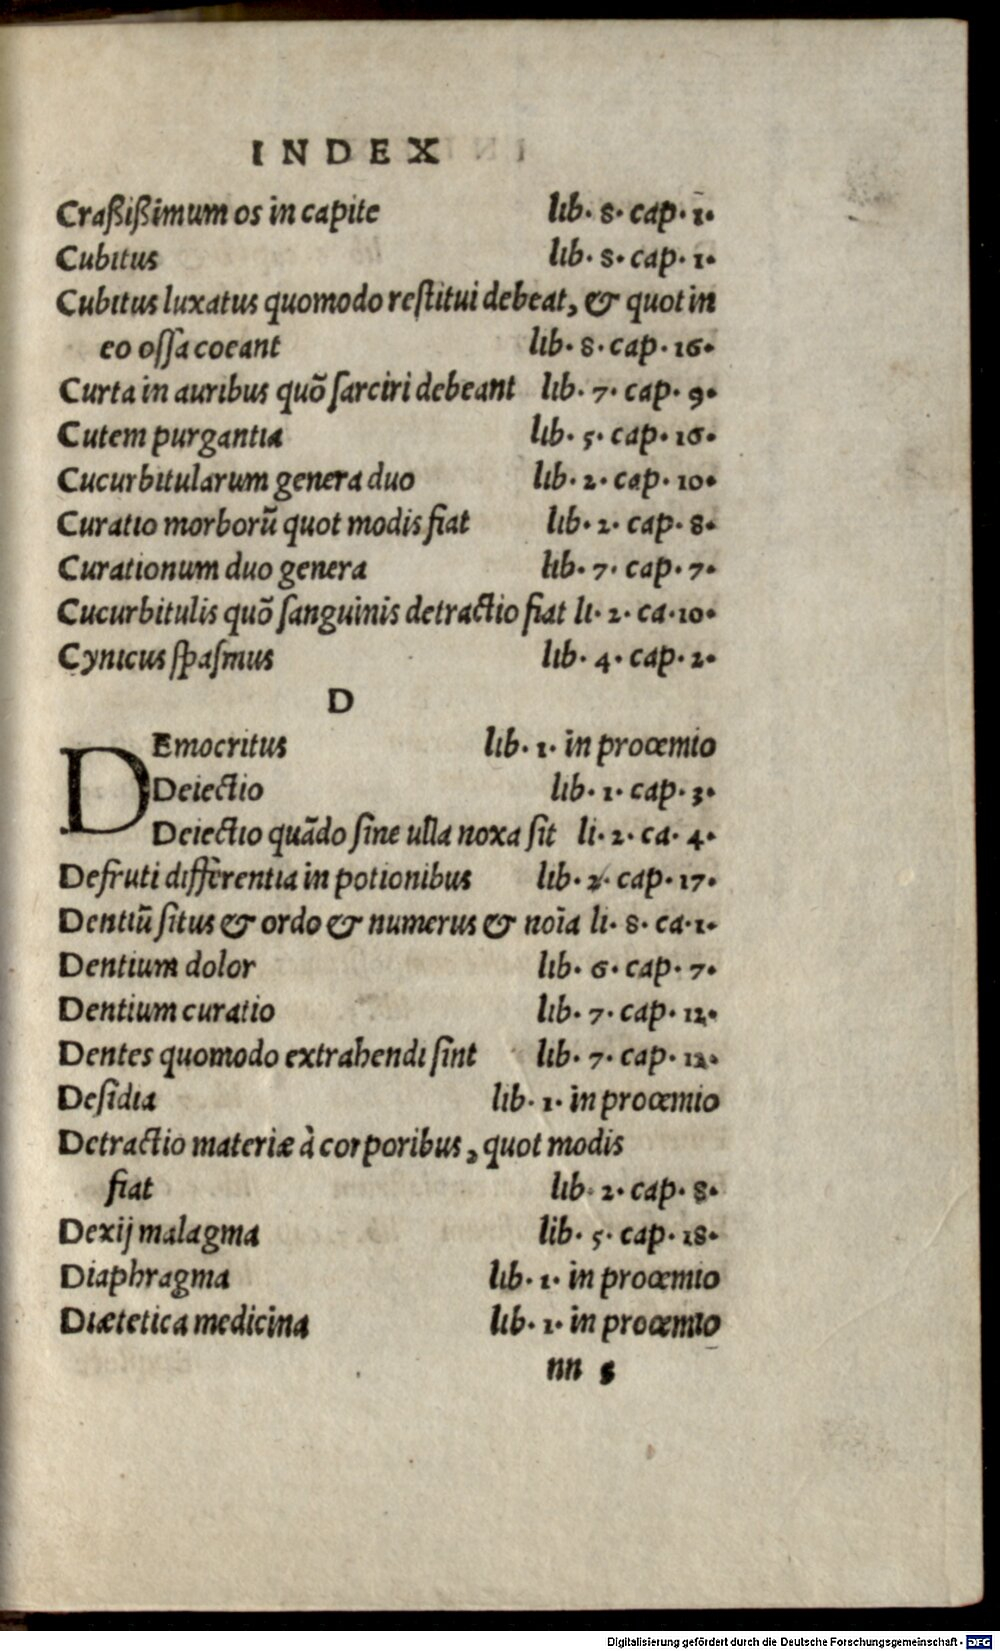 INDEX
Craßißimum os in capite lib. 8. cap. 1.
Cubitus lib. 8. cap. 1.
Cubitus luxatus quomodo reſtitui debeat, & quot in
eo oſſa coeant lib. 8. cap. 16.
Curta in auribus quõ ſarciri debeant lib. 7. cap. 9.
Cutem purgantia lib. 5. cap. 16.
Cucurbitularum genera duo lib. 2. cap. 10.
Curatio morborũ quot modis fiat lib. 2. cap. 8.
Curationum duo genera lib. 7. cap. 7.
Cucurbitulis quõ ſanguinis detractio fiat li. 2. ca. 10.
Cynicus ſpaſmus lib. 4. cap. 2.
D
DEmocritus lib. 1. in procemio
Deiectio lib. 1. cap. 3.
Deiectio quãdo ſine ulla noxa ſit li. 2. ca. 4.
Defruti differentia in potionibus lib. 2. cap. 17.
Dentiũ ſitus & ordo & numerus & noĩa li. 8. ca. 1.
Dentium dolor lib. 6. cap. 7.
Dentium curatio lib. 7. cap. 12.
Dentes quomodo extrahendi ſint lib. 7. cap. 12.
Deſidia lib. 1. in proœmio
Detractio materiæ à corporibus, quot modis
fiat lib. 2. cap. 8.
Dexij malagma lib. 5. cap. 18.
Diaphragma lib. 1. in proœmio
Diætetica medicina lib. 1. in proœmio
nn s
Digitalisierung gefördert durch die Deutsche Forschungsgemeinschaft - DFG